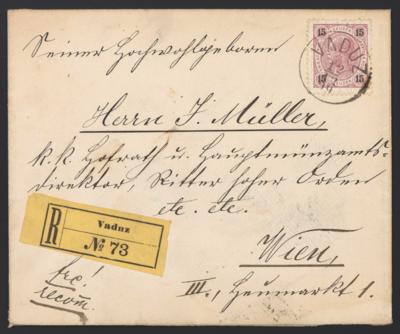 15 15
VADUZ
15 15
Seiner Hochwohlgeboren
Herrn J. Müller,
k. k. Hofrath u. Hauptmünzamts-
direktor, Ritter hoher Orden
etc. etc.
R
Vaduz
№ 73
Wien,
frc!
recom.
III., Heumarkt 1.